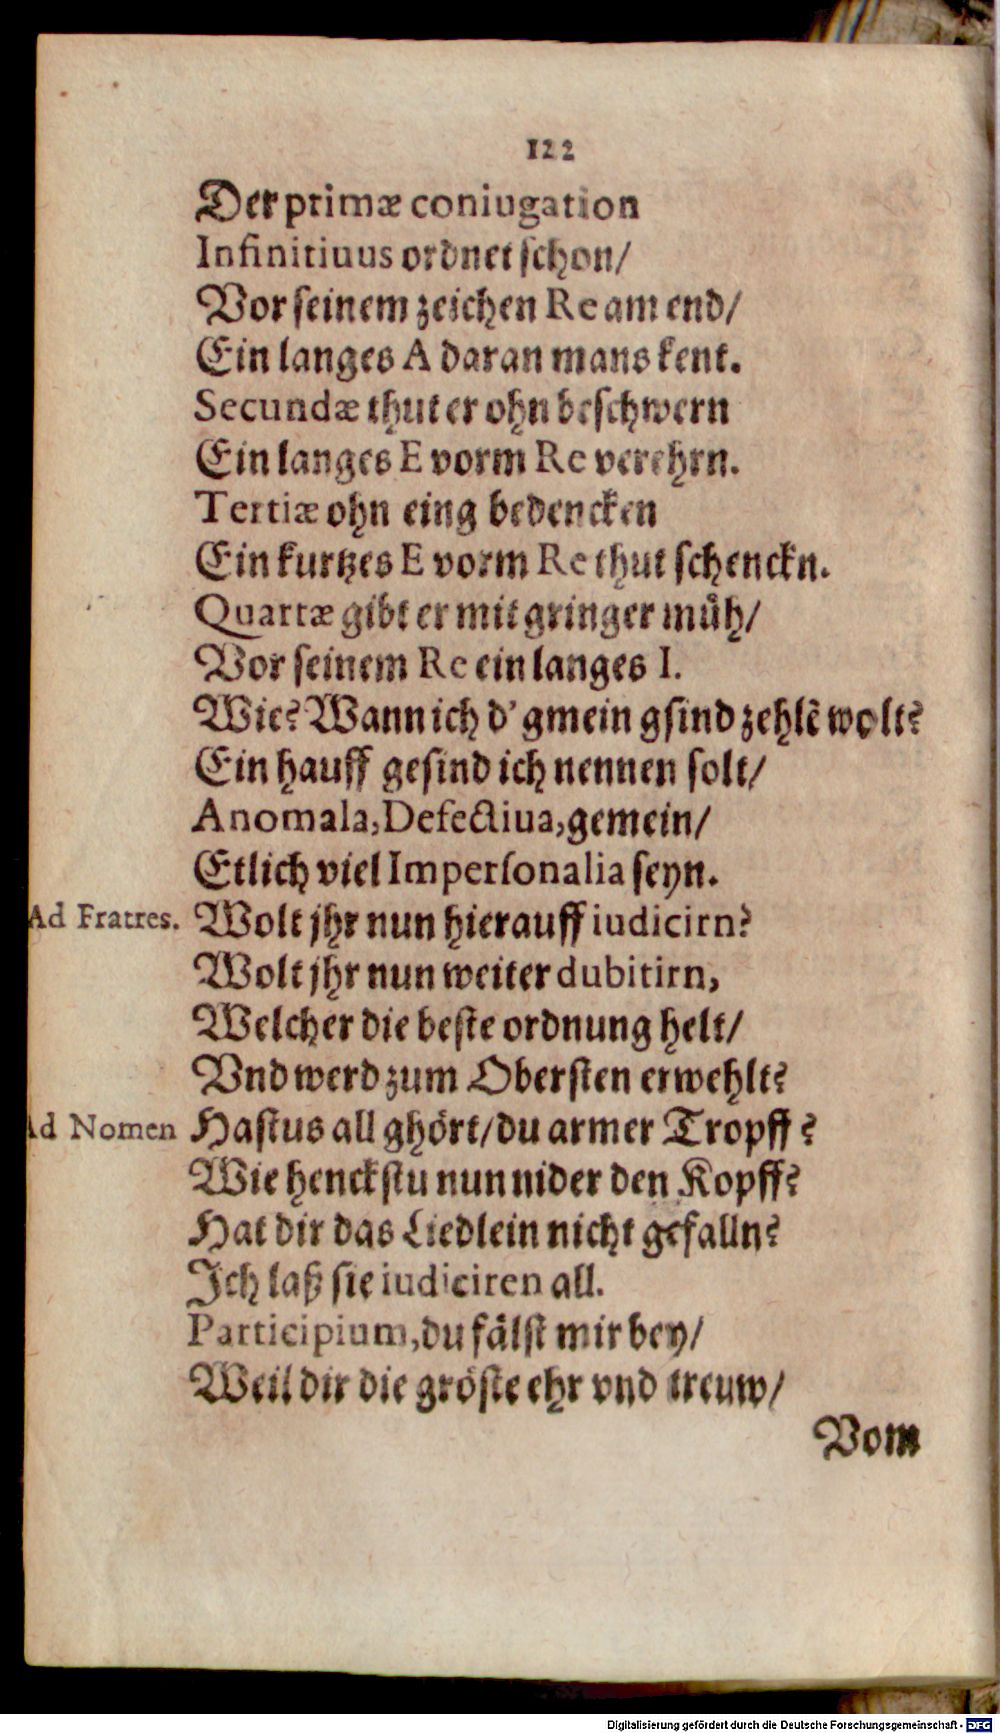 122
Der primæ coniugation
Infinitiuus ordnet schon/
Vor seinem zeichen Re am end/
Ein langes A daran mans kent.
Secundæ thut er ohn beschwern
Ein langes E vorm Re verehrn.
Tertiæ ohn eing bedencken
Ein kurtzes E vorm Re thut schenckn.
Quartæ gibt er mit gringer muͤh/
Vor seinem Re ein langes I.
Wie? Wann ich d' gmein gsind zehlẽ wolt?
Ein hauff gesind ich nennen solt/
Anomala, Defectiua, gemein/
Etlich viel Impersonalia seyn.
Ad Fratres. Wolt jhr nun hierauff iudicirn?
Wolt jhr nun weiter dubitirn,
Welcher die beste ordnung helt/
Vnd werd zum Obersten erwehlt?
Ad Nomen Hastus all ghoͤrt/ du armer Tropff?
Wie henckstu nun nider den Kopff?
Hat dir das Liedlein nicht gefalln?
Ich laß sie iudiciren all.
Participium, du faͤlst mir bey/
Weil dir die groͤste ehr vnd treuw/
Vom
Digitalisierung gefördert durch die Deutsche Forschungsgemeinschaft - DFG